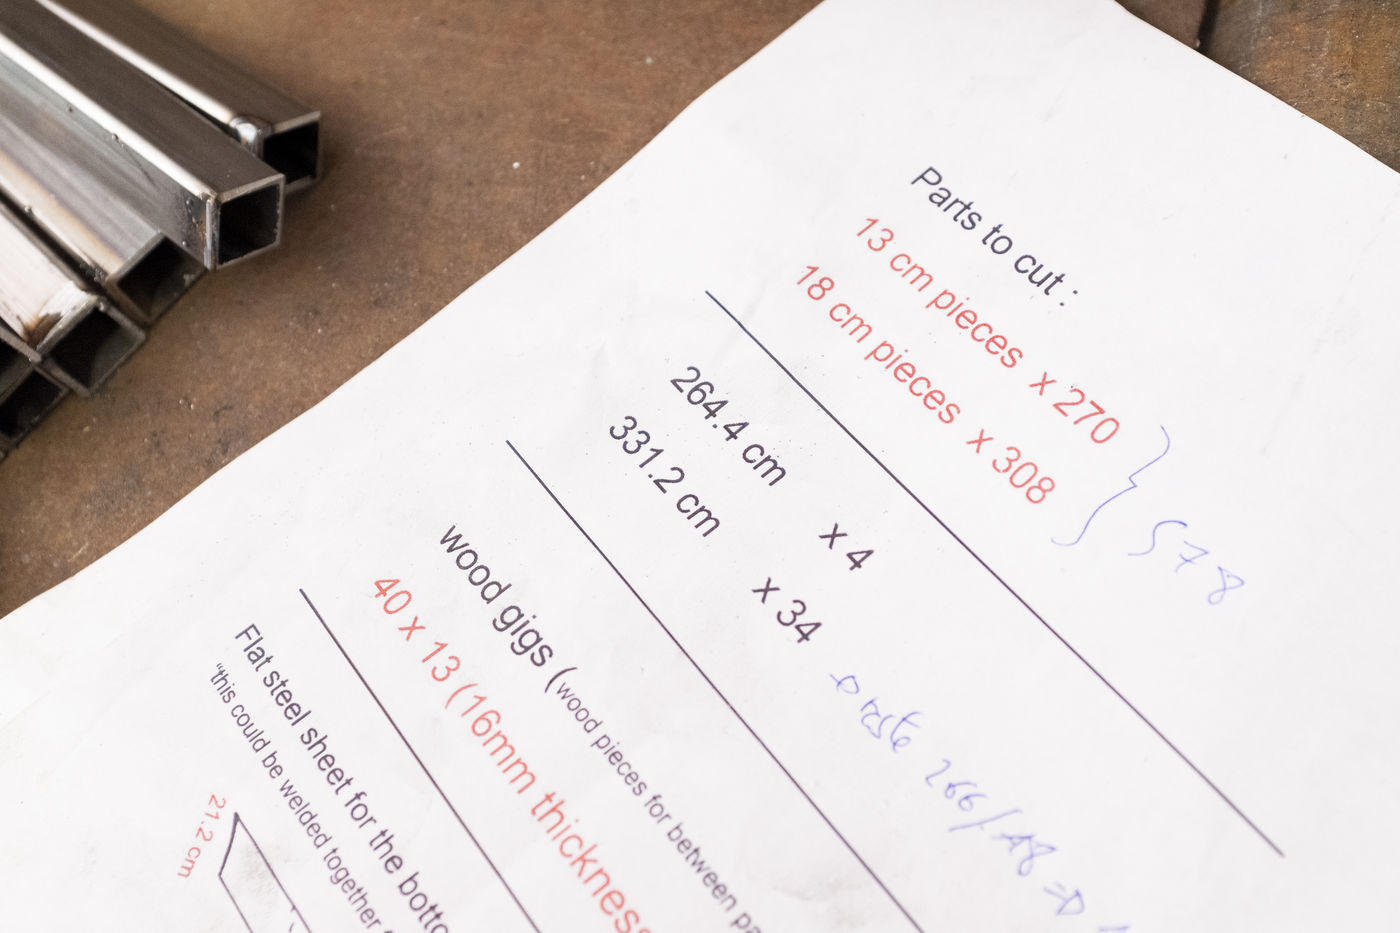 Parts to cut :
13 cm pieces x 270
18 cm pieces x 308
578
264.4 cm x 4
331.2 cm x 34
reste 266 / 18
wood gigs (wood pieces for between
40 x 13 (16mm thickness
Flat steel sheet for the
"this could be welded together
21.2 cm